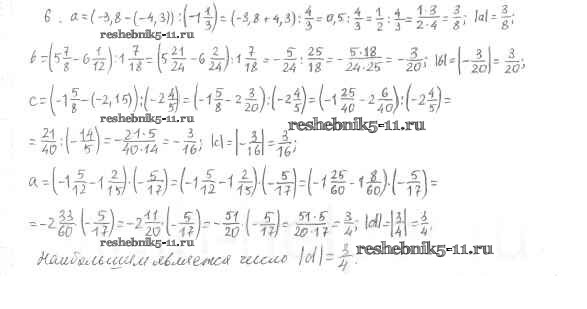 6. a = (-3,8 - (-4,3)) : (-1 1/3) = (-3,8 + 4,3) : 4/3 = 0,5 : 4/3 = 1/2 : 4/3 = 1·3/2·4 = 3/8; |a| = 3/8;
reshebnik5-11.ru
b = (5 7/8 - 6 1/12) : 1 7/18 = (5 21/24 - 6 2/24) : 1 7/18 = - 5/24 : 25/18 = - 5·18/24·25 = - 3/20; |b| = |- 3/20| = 3/20;
reshebnik5-11.ru
c = (-1 5/8 - (-2,15)) : (-2 4/5) = (-1 5/8 - 2 3/20) : (-2 4/5) = (-1 25/40 - 2 6/40) : (-2 4/5) =
reshebnik5-11.ru
= 21/40 : (- 14/5) = - 21·5/40·14 = - 3/16; |c| = |- 3/16| = 3/16;
reshebnik5-11.ru
a = (-1 5/12 - 1 2/15) · (- 5/17) = (-1 5/12 - 1 2/15) · (- 5/17) = (-1 25/60 - 1 8/60) · (- 5/17) =
= -2 33/60 · (- 5/17) = -2 11/20 (- 5/17) = - 51/20 · (- 5/17) = 51·5/20·17 = 3/4; |d| = |3/4| = 3/4.
reshebnik5-11.ru
Наибольшим является число |d| = 3/4.
reshebnik5-11.ru